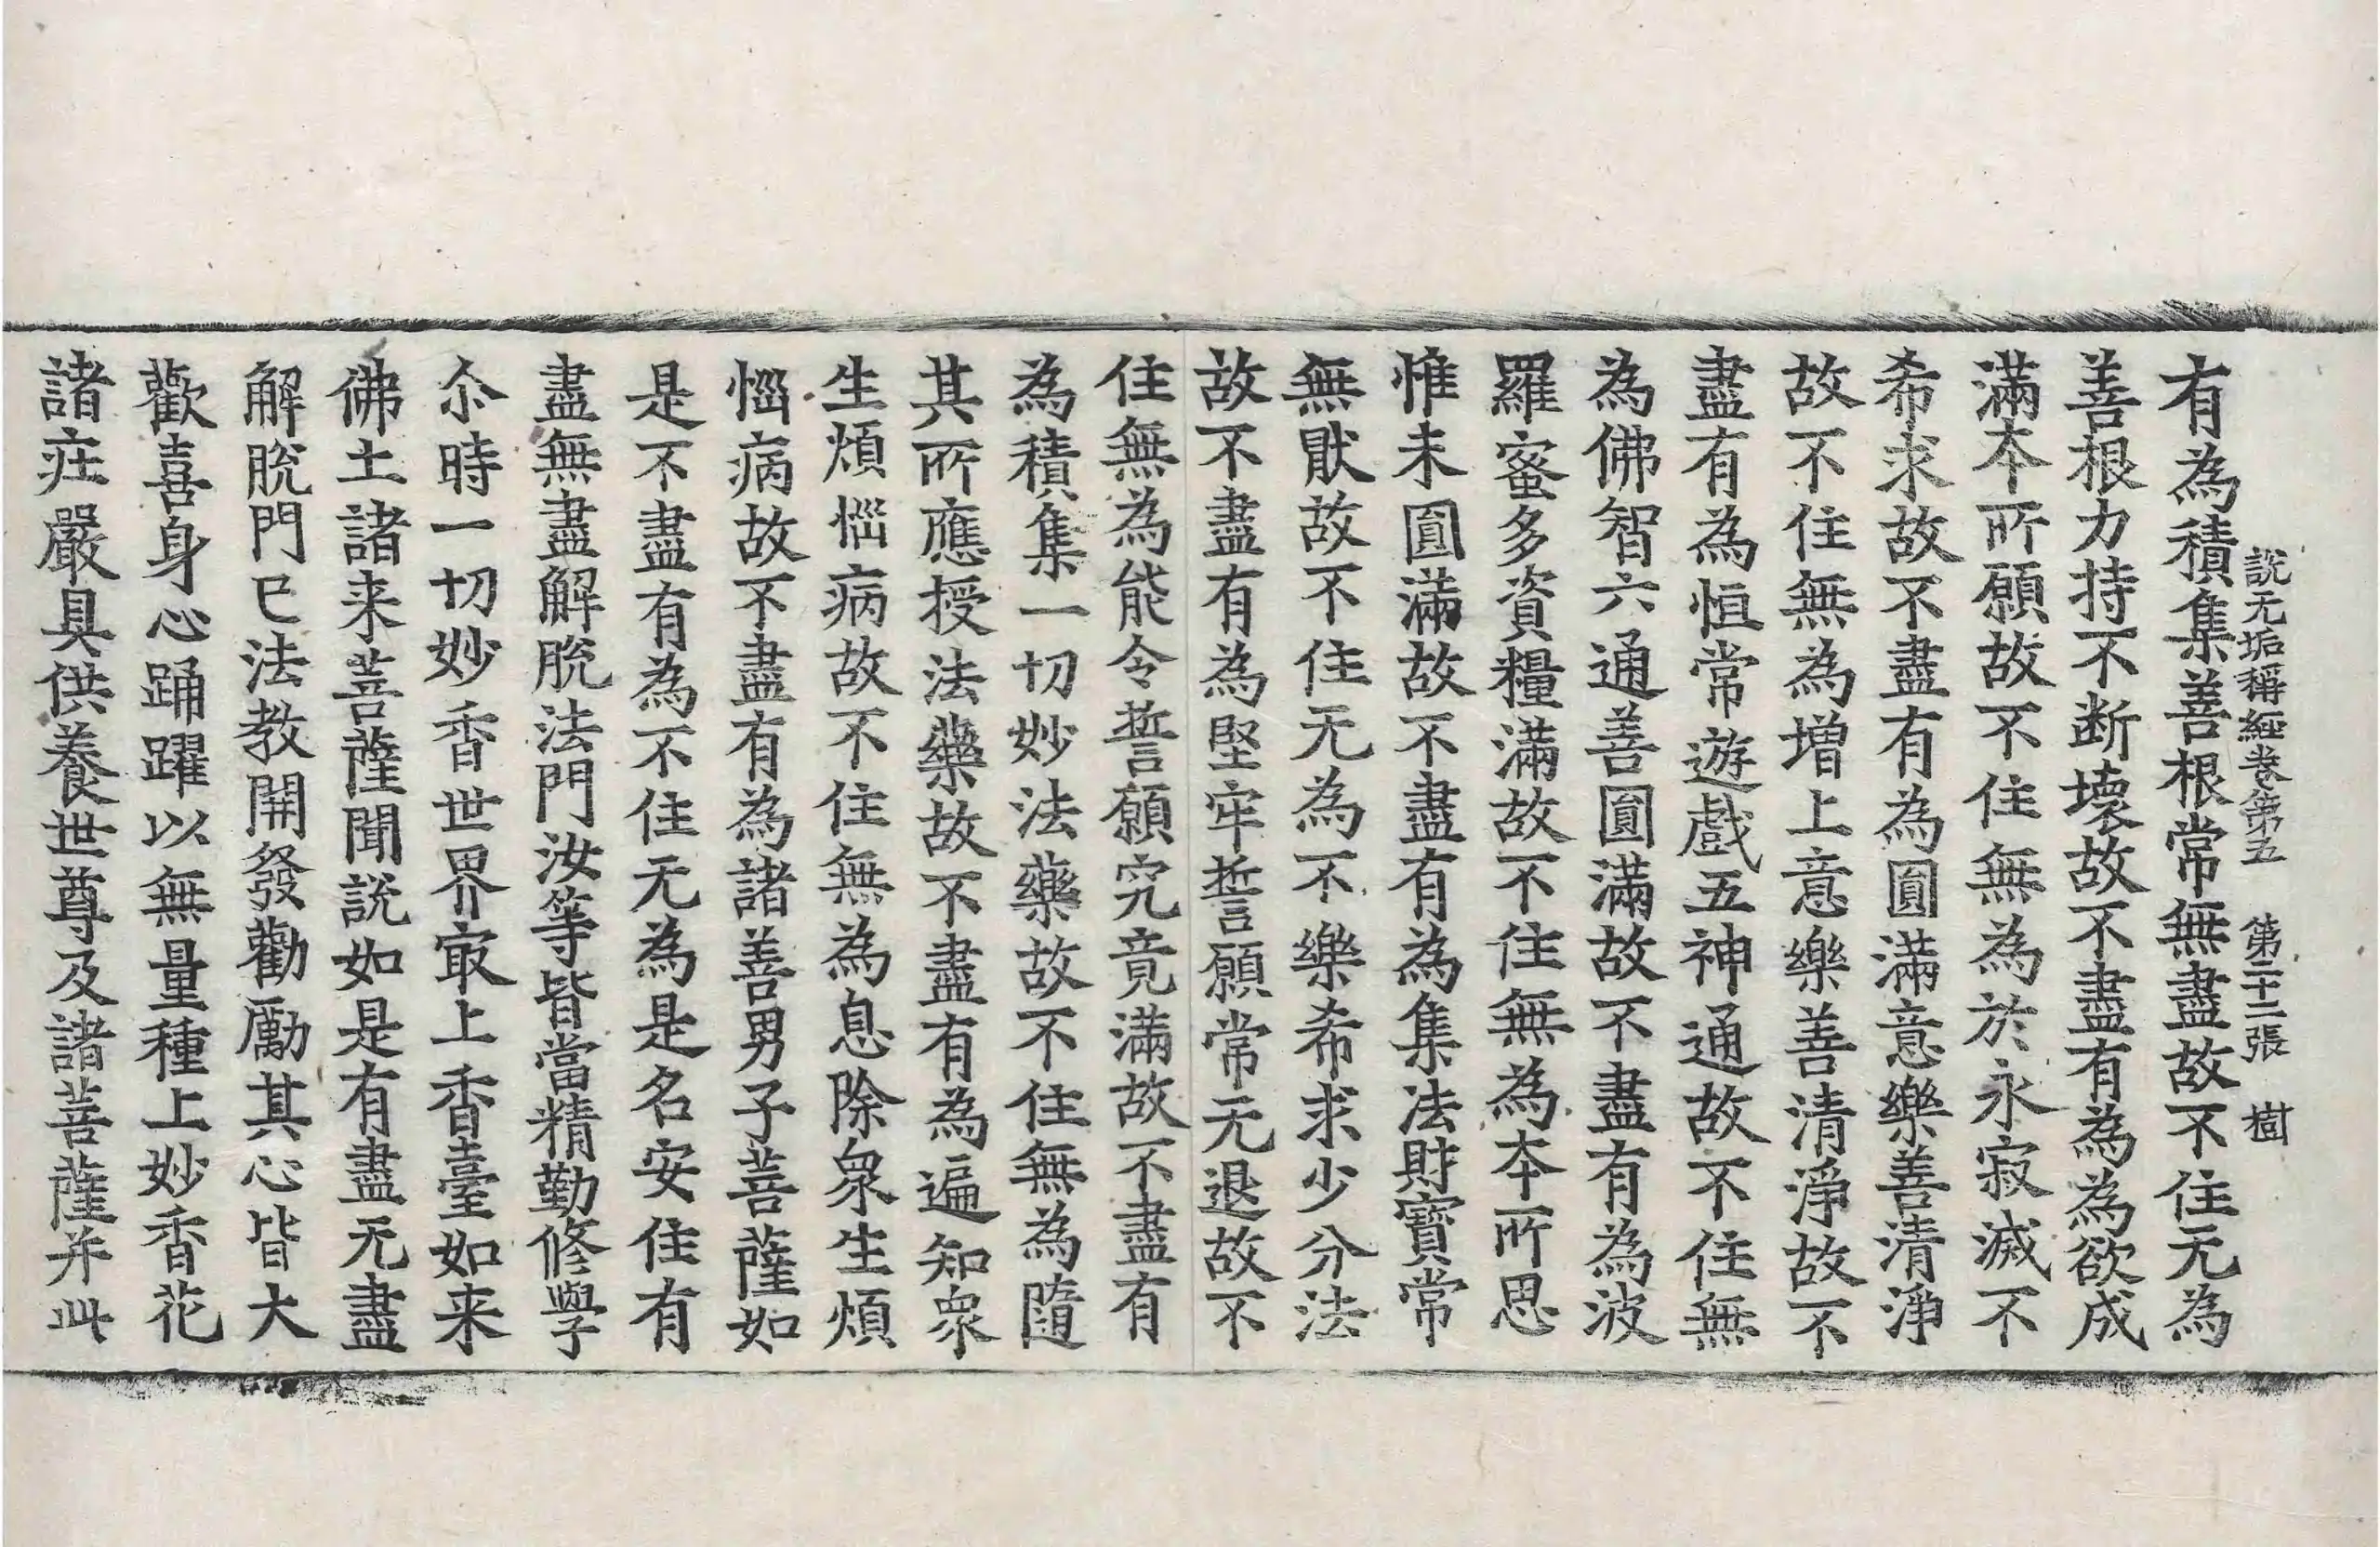 說无垢稱經卷第五　第二十二張　樹
有為積集善根常無盡故不住无為
善根力持不断壞故不盡有為為欲成
滿夲所願故不住無為於永寂滅不
希求故不盡有為圓滿意樂善清淨
故不住無為增上意樂善清淨故不
盡有為恒常遊戲五神通故不住無
為佛智六通善圓滿故不盡有為波
羅蜜多資糧滿故不住無為夲所思
惟未圓滿故不盡有為集法財寶常
無猒故不住无為不樂希求少分法
故不盡有為堅牢誓願常无退故不
住無為能令誓願究竟滿故不盡有
為積集一切妙法藥故不住無為隨
其所應授法藥故不盡有為遍知衆
生煩惱病故不住無為息除衆生煩
惱病故不盡有為諸善男子菩薩如
是不盡有為不住无為是名安住有
盡無盡解脫法門汝等皆當精勤修學
尒時一切妙香世界㝡上香臺如来
佛土諸来菩薩聞說如是有盡无盡
解脫門已法教開發勸勵其心皆大
歡喜身心踊躍以無量種上妙香花
諸庄嚴具供養世尊及諸菩薩并此